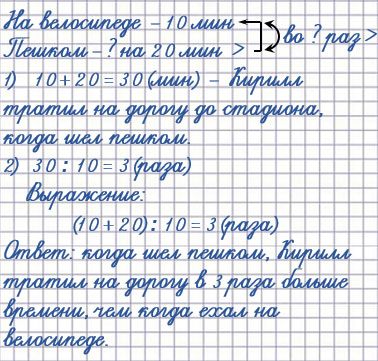 На велосипеде – 10 мин
Пешком – ? на 20 мин > во ? раз >
1) 10 + 20 = 30 (мин) – Кирилл
тратил на дорогу до стадиона,
когда шел пешком.
2) 30 : 10 = 3 (раза)
Выражение:
(10 + 20) : 10 = 3 (раза)
Ответ: когда шел пешком, Кирилл
тратил на дорогу в 3 раза больше
времени, чем когда ехал на
велосипеде.